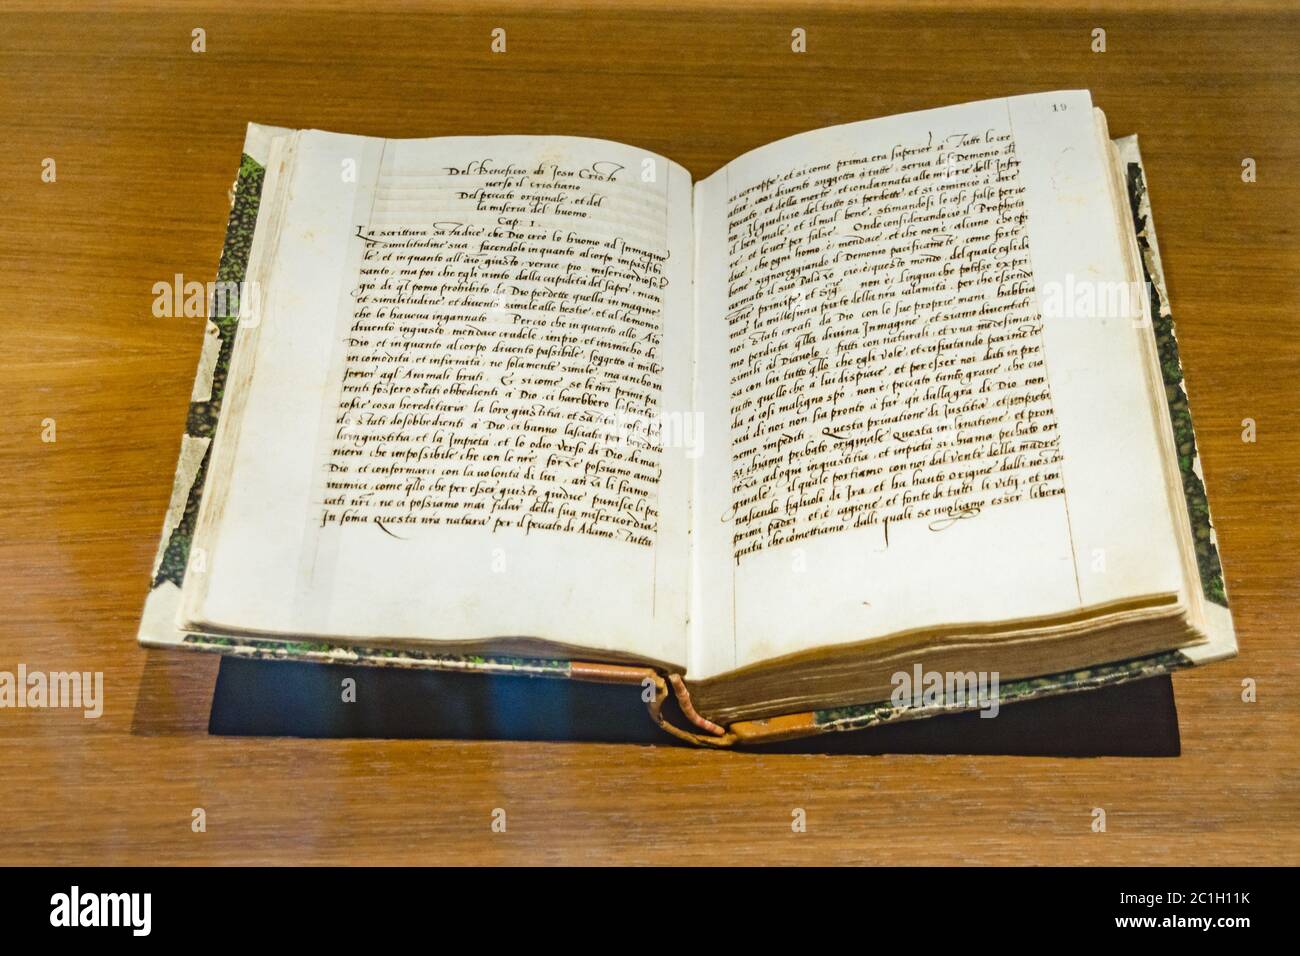 Del Beneficio di Jesu Cristo
verso il cristiano
Del peccato originale, et del
la miseria del huomo.
Cap: I.
La scrittura sa tadice che Dio creò lo huomo ad Inmagine
et similitudine sua. facendolo inquanto alcorpo impassibi
le, et inquanto all'aīo giusto, verace, pio, misericordioso,
santo, ma poi che egli vinto dalla cupidità del saper, man
giò di ql pomo prohibito da Dio perdette quella inmagine
et similitudine, et diventò simile alle bestie, et al demonio
che lo haveva ingannato. Percio che inquanto allo Aīo
diventò ingiusto, mendace crudele, impio, et inimicho di
Dio, et inquanto alcorpo diventò passibile, soggetto à mille
incomodità, et infirmità, ne solamente simile, ma ancho in
ferior agl' Animali bruti. E si come, se li nrī primi pa
renti fossero stati obbedienti à Dio, ci harebbero lasciata
come cosa hereditaria la loro giustitia, et
do stati disobbedienti à Dio, ci hanno lasciata per heredità
la ingiustitia, et la Impietà, et lo odio verso di Dio, di ma
niera che impossibile che con le nrē forze possiamo amar
Dio, et conformarci con la volontà di lui, anzi li siamo
inimici, come qllo che per esser giusto giudice punisce li pec
cati nrī, ne ci possiamo mai fidar della sua misericordia
In soma questa nrā natura per il peccato di Adamo, tutta
19
si corroppe, et si come prima era superior à Tutte le cre
ature, cosi diventò suggetta à tutte, serva del Demonio
peccato, et della morte, et condannata alle miserie dell' Infer
no. Il giudicio del tutto si perdette, et si cominciò à dire
el ben male, et il mal bene, stimandosi le cose false per ve
re, et le ver per false. Onde considerando ciò il Propheta
dice, che ogni homo è mendace, et che non è alcuno che opi
bene, signoreggiando il Demonio pacificamēte, come forte
armato il suo Palazo, cio è questo mondo, del quale egli di
venne principe, et Sigre. non è lingua che potesse expri
mer la millesima parte della nrā calamità, per che essendo
noi stati creati da Dio con le sue proprie mani, habbia
mo perduta qlla divina Inmagine, et siamo diventati
simili al Diavolo, fatti con naturali, et vna medesima co
sa con lui, tutto qllo che egli vole, et rifiutando parimente
tutto quello che à lui dispiace, et per esser noi dati in pre
da à cosi maligno spo, non è peccato tanto grave, che cia
scū di noi non sia pronto à far qn dalla gra di Dio, non
semo impediti. Questa privatione di Justitia,
si chiama pechato originale, questa inclinatione, et pron
teza, ad ogni inquistitia, et impietà si chiama pechato ori
ginale, il quale portiamo con noi dal ventre della madre
nascendo figlioli di Ira, et ha hauto origine dalli nostri
primi padri, et è cagione, et fonte di tutti li vitij, et ini
quità che cōmettiamo, dalli quali se vogliamo esser libera